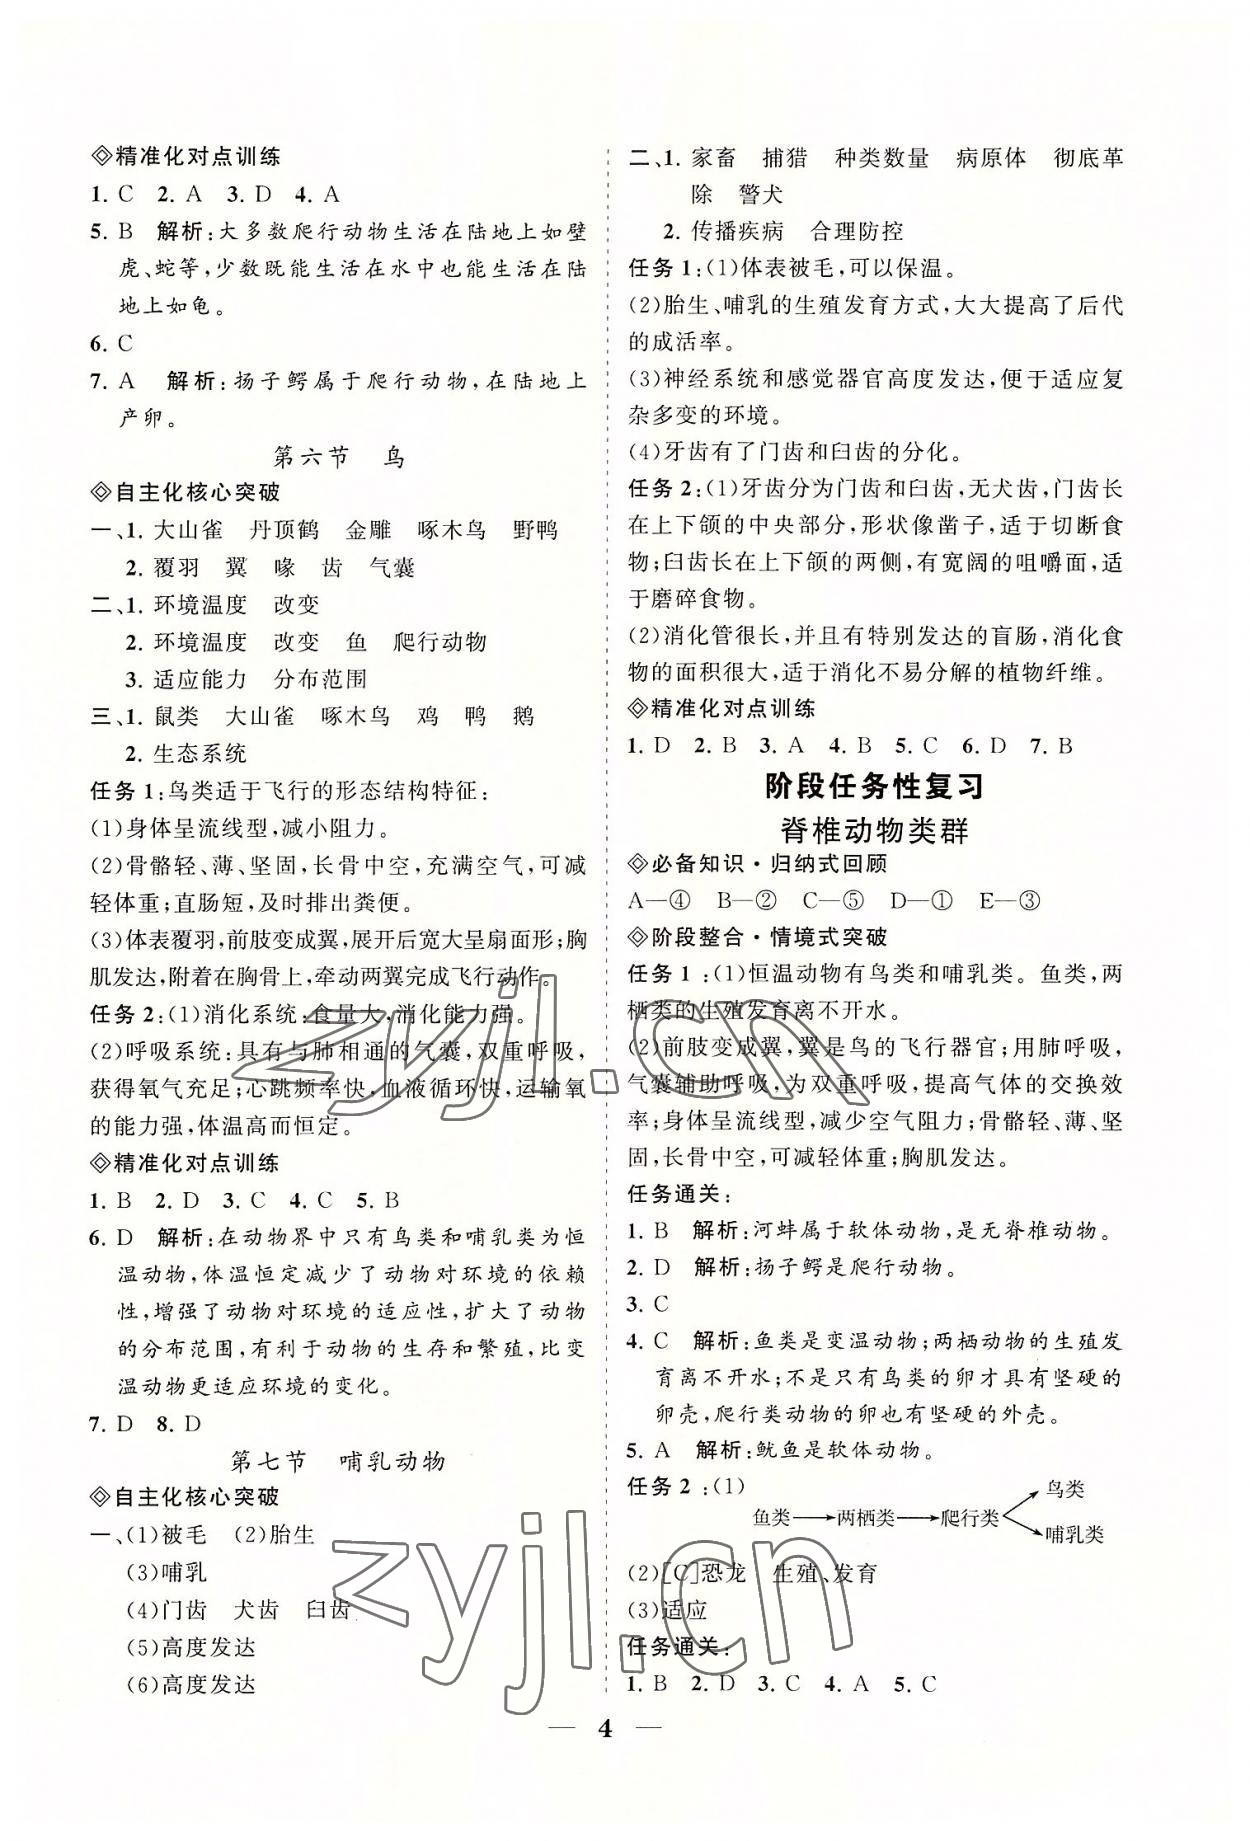 ◇精准化对点训练
1. C 2. A 3. D 4. A
5. B 解析:大多数爬行动物生活在陆地上如壁
虎、蛇等,少数既能生活在水中也能生活在陆
地上如龟。
6. C
7. A 解析:扬子鳄属于爬行动物,在陆地上
产卵。
第六节 鸟
◇自主化核心突破
一、1. 大山雀 丹顶鹤 金雕 啄木鸟 野鸭
2. 覆羽 翼 喙 齿 气囊
二、1. 环境温度 改变
2. 环境温度 改变 鱼 爬行动物
3. 适应能力 分布范围
三、1. 鼠类 大山雀 啄木鸟 鸡 鸭 鹅
2. 生态系统
任务 1:鸟类适于飞行的形态结构特征:
(1)身体呈流线型,减小阻力。
(2)骨骼轻、薄、坚固,长骨中空,充满空气,可减
轻体重;直肠短,及时排出粪便。
(3)体表覆羽,前肢变成翼,展开后宽大呈扇面形;胸
肌发达,附着在胸骨上,牵动两翼完成飞行动作。
任务 2:(1)消化系统:食量大,消化能力强。
(2)呼吸系统:具有与肺相通的气囊,双重呼吸,
获得氧气充足;心跳频率快,血液循环快,运输氧
的能力强,体温高而恒定。
◇精准化对点训练
1. B 2. D 3. C 4. C 5. B
6. D 解析:在动物界中只有鸟类和哺乳类为恒
温动物,体温恒定减少了动物对环境的依赖
性,增强了动物对环境的适应性,扩大了动物
的分布范围,有利于动物的生存和繁殖,比变
温动物更适应环境的变化。
7. D 8. D
第七节 哺乳动物
◇自主化核心突破
一、(1)被毛 (2)胎生
(3)哺乳
(4)门齿 犬齿 臼齿
(5)高度发达
(6)高度发达
二、1. 家畜 捕猎 种类数量 病原体 彻底革
除 警犬
2. 传播疾病 合理防控
任务 1:(1)体表被毛,可以保温。
(2)胎生、哺乳的生殖发育方式,大大提高了后代
的成活率。
(3)神经系统和感觉器官高度发达,便于适应复
杂多变的环境。
(4)牙齿有了门齿和臼齿的分化。
任务 2:(1)牙齿分为门齿和臼齿,无犬齿,门齿长
在上下颌的中央部分,形状像凿子,适于切断食
物;臼齿长在上下颌的两侧,有宽阔的咀嚼面,适
于磨碎食物。
(2)消化管很长,并且有特别发达的盲肠,消化食
物的面积很大,适于消化不易分解的植物纤维。
◇精准化对点训练
1. D 2. B 3. A 4. B 5. C 6. D 7. B
阶段任务性复习
脊椎动物类群
◇必备知识·归纳式回顾
A—④ B—② C—⑤ D—① E—③
◇阶段整合·情境式突破
任务 1 :(1)恒温动物有鸟类和哺乳类。鱼类,两
栖类的生殖发育离不开水。
(2)前肢变成翼,翼是鸟的飞行器官;用肺呼吸,
气囊辅助呼吸,为双重呼吸,提高气体的交换效
率;身体呈流线型,减少空气阻力;骨骼轻、薄、坚
固,长骨中空,可减轻体重;胸肌发达。
任务通关:
1. B 解析:河蚌属于软体动物,是无脊椎动物。
2. D 解析:扬子鳄是爬行动物。
3. C
4. C 解析:鱼类是变温动物;两栖动物的生殖发
育离不开水;不是只有鸟类的卵才具有坚硬的
卵壳,爬行类动物的卵也有坚硬的外壳。
5. A 解析:鱿鱼是软体动物。
任务 2 :(1)
鱼类→两栖类→爬行类
鸟类
哺乳类
(2)[C]恐龙 生殖、发育
(3)适应
任务通关:
1. B 2. D 3. C 4. A 5. C
— 4 —
zyjl.cn
zyjl.cn